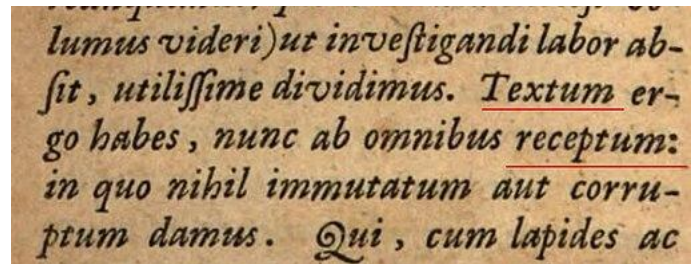 lumus videri) ut inveſtigandi labor ab-
ſit, utiliſſime dividimus. Textum er-
go habes, nunc ab omnibus receptum:
in quo nihil immutatum aut corru-
ptum damus. Qui, cum lapides ac